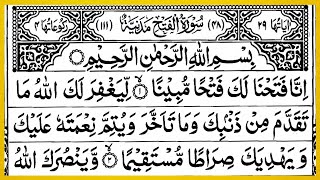 اٰیَاتُهَا ۲۹ (۴۸) سُوْرَةُ الْفَتْحِ مَدَنِیَّةٌ (۱۱۱) رُكُوْعَاتُهَا ۴
بِسْمِ اللّٰهِ الرَّحْمٰنِ الرَّحِیْمِ
اِنَّا فَتَحْنَا لَكَ فَتْحًا مُّبِیْنًا ۱ لِّیَغْفِرَ لَكَ اللّٰهُ مَا
تَقَدَّمَ مِنْ ذَنْۢبِكَ وَمَا تَاَخَّرَ وَیُتِمَّ نِعْمَتَهٗ عَلَیْكَ
وَیَهْدِیَكَ صِرَاطًا مُّسْتَقِیْمًا ۲ وَّیَنْصُرَكَ اللّٰهُ